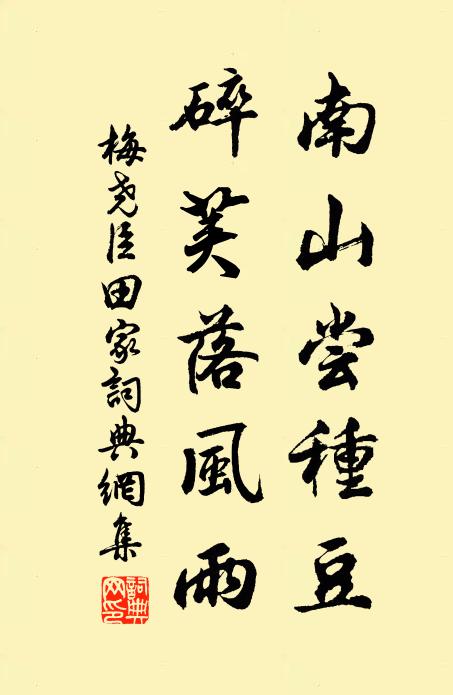 南山尝種豆
碎荚落風雨
梅尧臣田家詞典網集
詞典网印